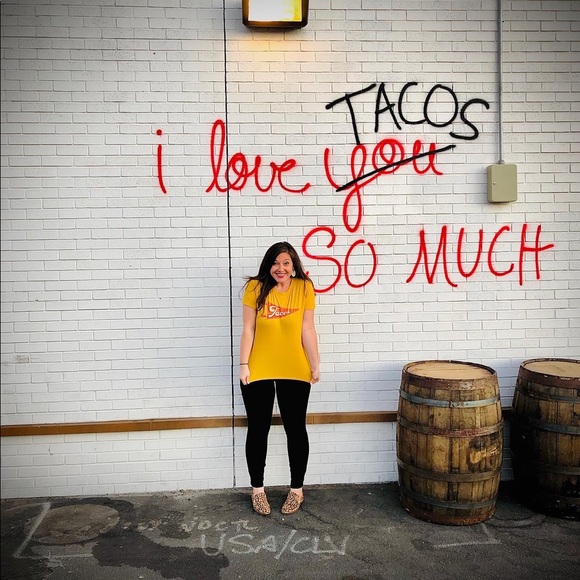 TACOS
i love you
SO MUCH
USA/CLV